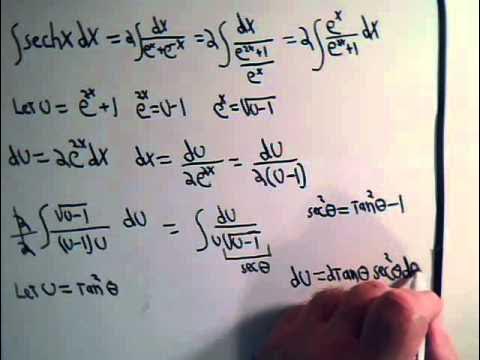 ∫sechx dx = 2∫dx/(e^x+e^-x) = 2∫dx/((e^2x+1)/e^x) = 2∫e^x/(e^2x+1) dx
Let U = e^2x+1 e^2x=U-1 e^x=√U-1
dU = 2e^2x dx dx = dU/2e^2x = dU/2(U-1)
sec²θ=Tan²θ-1
2/2 ∫ √U-1/(U-1)U dU = ∫ dU/U√U-1
secθ
Let U = Tan²θ dU=2Tanθ sec²θdθ